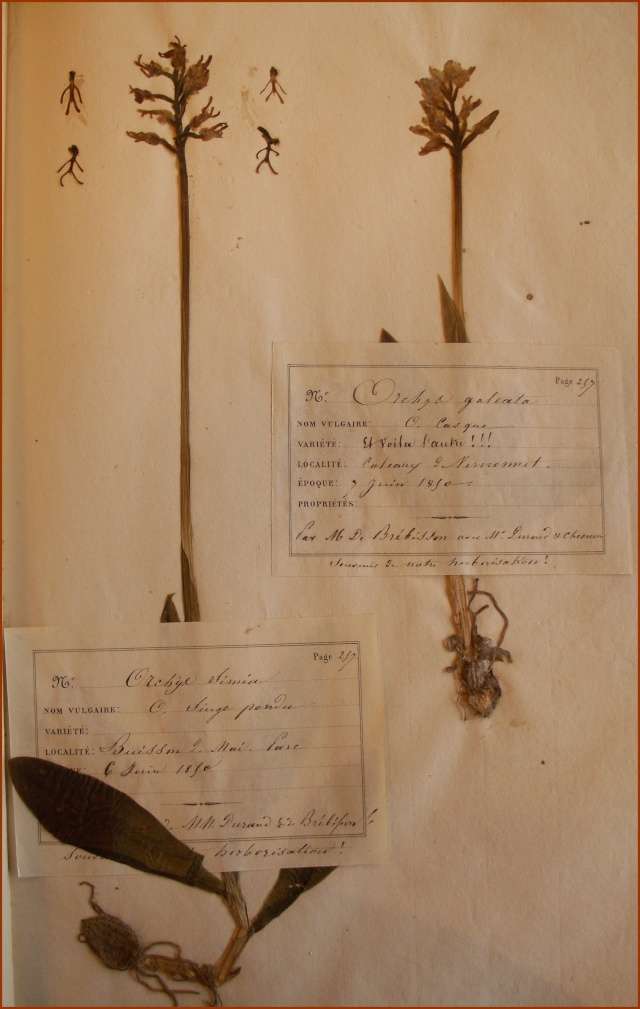 Page 257
N° Orchys galeata
NOM VULGAIRE: O. Casque
VARIÉTÉ: Et voila l'autre!!!
LOCALITÉ: Coteaux de Vernonnet.
ÉPOQUE: 7 Juin 1850
PROPRIÉTÉS:
Par M De Brébisson avec Mr Durand & Chesnon
Souvenir de notre herborisation!
Page 257
N° Orchys Simia
NOM VULGAIRE: O. Singe pendu
VARIÉTÉ:
LOCALITÉ: Buisson de Mai. Parc
6 Juin 1850
MM Durand & de Brébisson
herborisation!